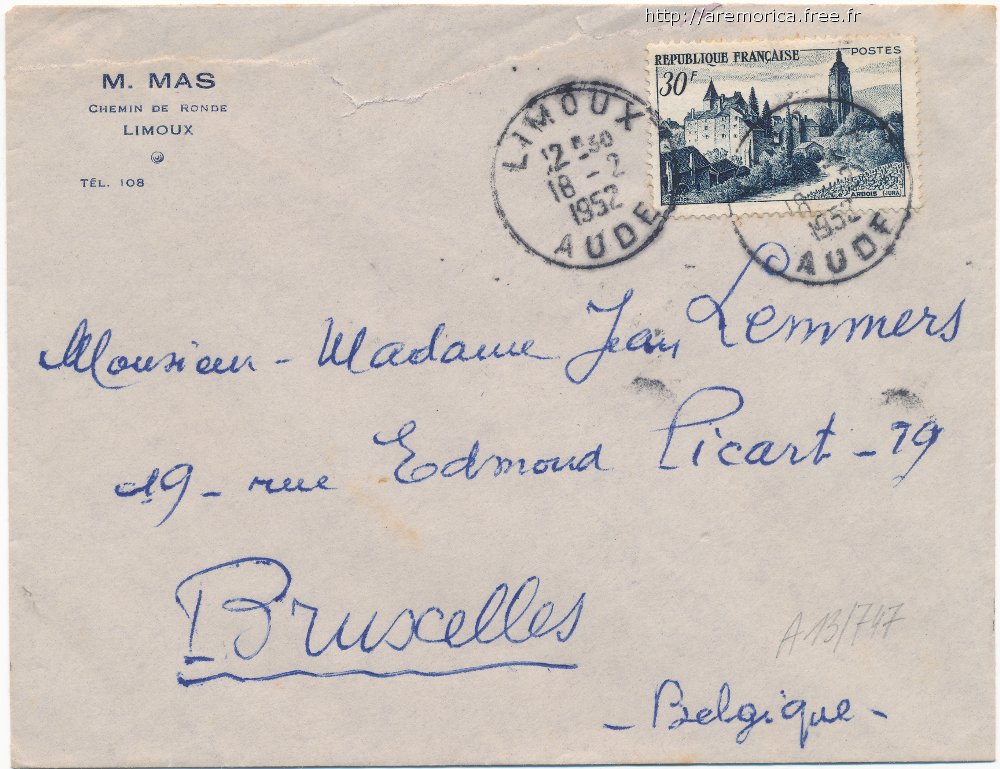 http://aremorica.free.fr
M. MAS
CHEMIN DE RONDE
LIMOUX
TÉL. 108
RÉPUBLIQUE FRANÇAISE
POSTES
30F
ARBOIS (JURA)
LIMOUX
12 H30
18 - 2
1952
AUDE
18
1952
AUDE
Monsieur - Madame Jean Lemmers
19 - rue Edmond Picart - 19
Bruxelles
- Belgique -
A13/747